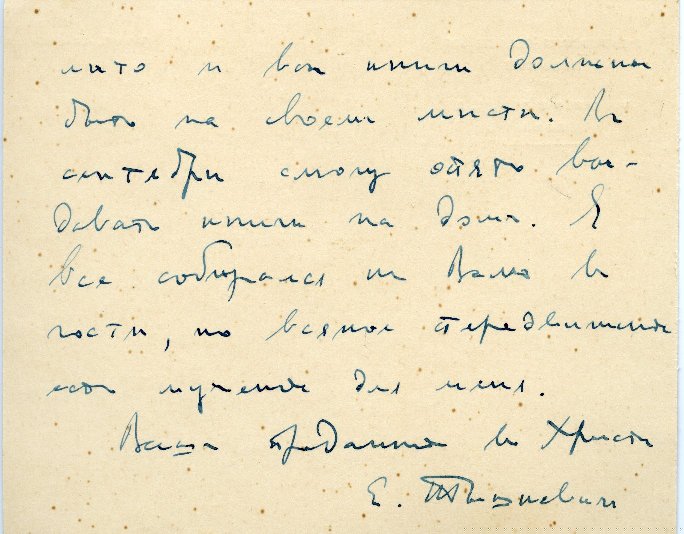 лито и вси книги должны
быть на своем мисти. В
сентебри смогу опять вы-
давать книги на домъ. Я
все собирался къ Вамъ в
гости, но всякое передвижение
есть мучение для меня.
Вашъ преданный в Христе
Е.